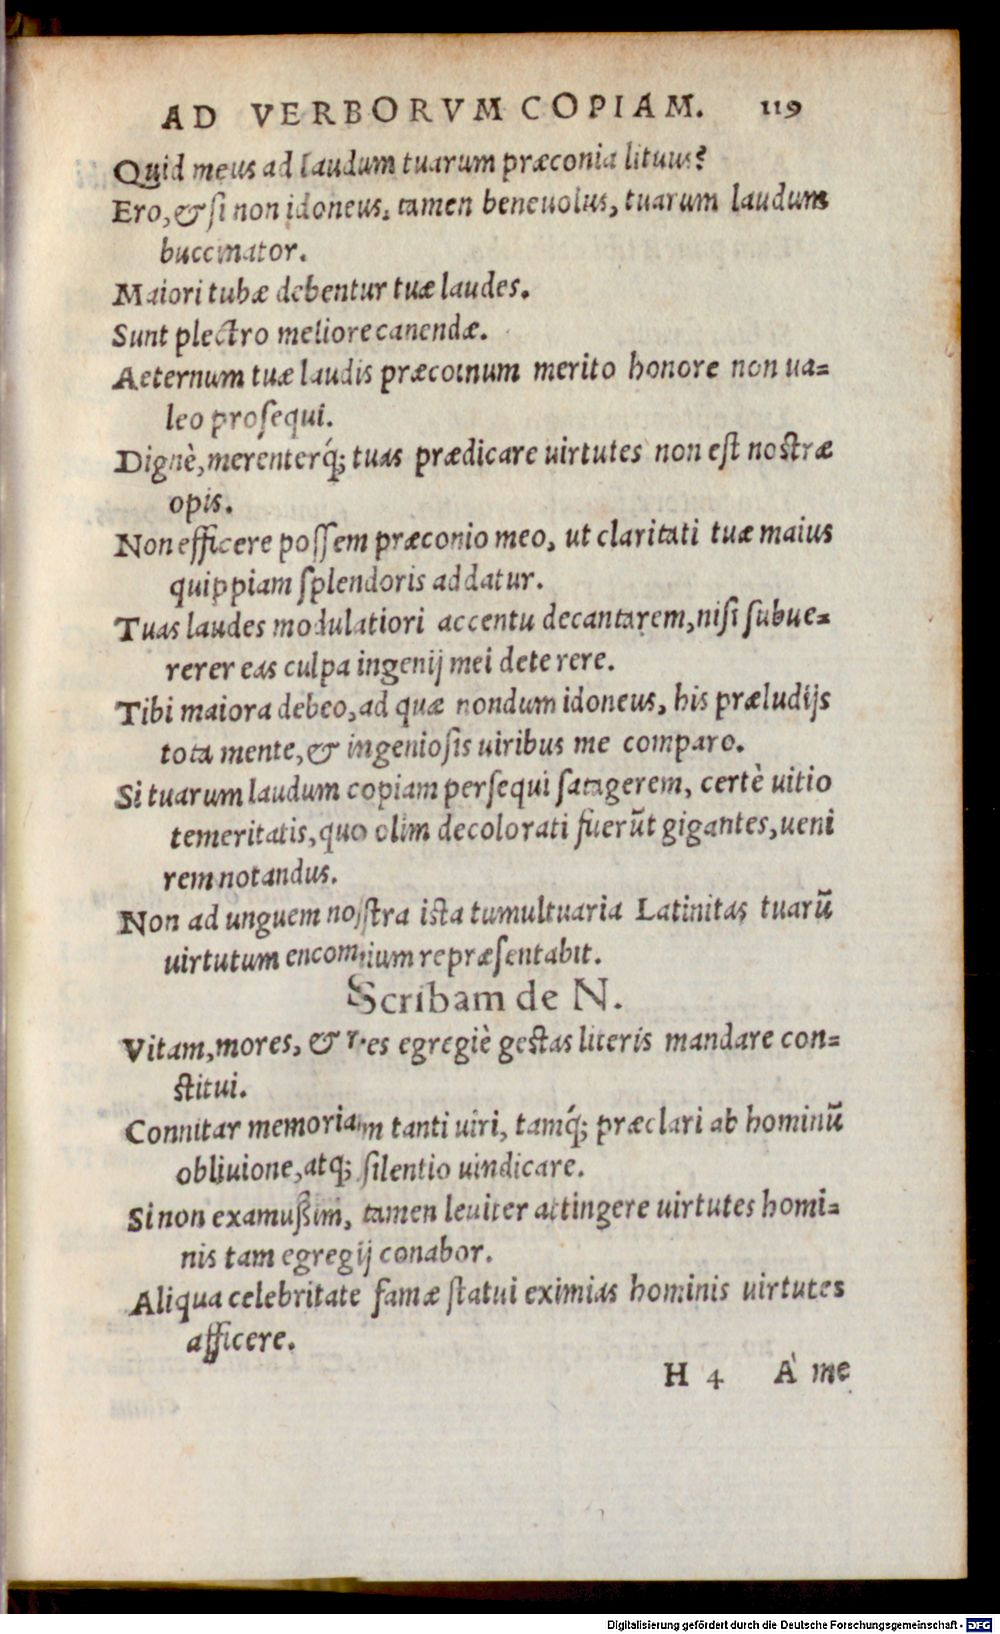 AD VERBORVM COPIAM. 119
Quid meus ad laudum tuarum præconia lituus?
Ero, & si non idoneus, tamen beneuolus, tuarum laudum
buccinator.
Maiori tubæ debentur tuæ laudes.
Sunt plectro meliore canendæ.
Aeternum tuæ laudis præconium merito honore non ua=
leo prosequi.
Dignè, merenterq́; tuas prædicare uirtutes non est nostræ
opis.
Non efficere possem præconio meo, ut claritati tuæ maius
quippiam splendoris addatur.
Tuas laudes modulatiori accentu decantarem, nisi subue=
rerer eas culpa ingenij mei deterere.
Tibi maiora debeo, ad quæ nondum idoneus, his præludijs
tota mente, & ingeniosis uiribus me comparo.
Si tuarum laudum copiam persequi satagerem, certè uitio
temeritatis, quo olim decolorati fuerūt gigantes, ueni
rem notandus.
Non ad unguem nostra ista tumultuaria Latinitas tuarū
uirtutum encomium repræsentabit.
Scribam de N.
Vitam, mores, & res egregiè gestas literis mandare con=
stitui.
Connitar memoriam tanti uiri, tamq́; præclari ab hominū
obliuione, atq; silentio uindicare.
Si non examußim, tamen leuiter attingere uirtutes homi=
nis tam egregij conabor.
Aliqua celebritate famæ statui eximias hominis uirtutes
afficere.
H 4 À me
Digitalisierung gefördert durch die Deutsche Forschungsgemeinschaft - DFG